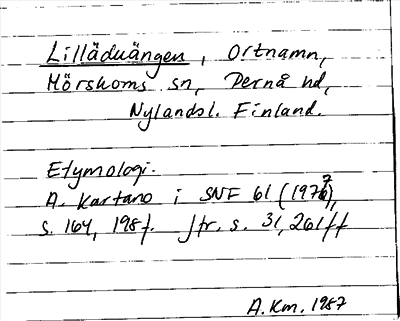 Lillädkängen, Ortnamn,
Mörskoms sn, Pernå hd,
Nylandsl. Finland.
Etymologi.
A. Kartano i SNF 61 (1977),
s. 164, 198f. Jfr. s. 31, 261ff
A.Km. 1987